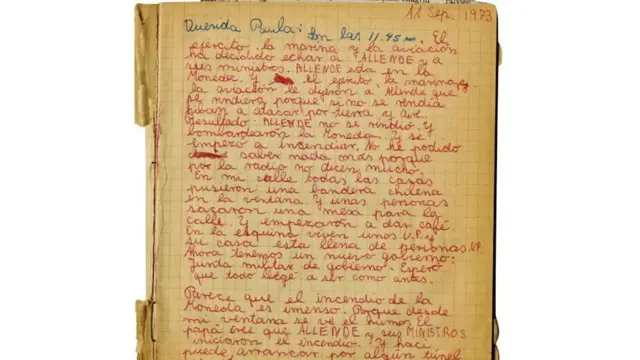 11 Sep. 1973
Querida Paula: Son las 11.45 m. El
ejército, la marina y la aviación
ha dicidido echar a ALLENDE y a
sus ministros. ALLENDE esta en la
Moneda. Y el ejercito la marina y
la aviación le dijeron a Allende que
se rindiera porque si no se rendia
iban a atacar por tierra y aire
Resultado: ALLENDE no se rindió. Y
bombardearon la Moneda. Y se
empezó a incendiar. No he podido
saber nada más porque
por la radio no dicen mucho.
En mi calle todas las casas
pusieron una bandera chilena
en la ventana. Y unas personas
sacaron una mesa para la
calle. Y empezaron a dar café.
En la esquina viven unos U.P. y
su casa esta llena de personas UP.
Ahora tenemos un nuevo gobierno:
Junta militar de gobierno. Espero
que todo llegé a ser como antes.
Parece que el incendio de la
Moneda es imenso. Porque desde
mi ventana se ve el humo. El
papá cree que ALLENDE y sus MINISTROS
iniciaron el incendio. Y haci
puede arrancar por algún túnel